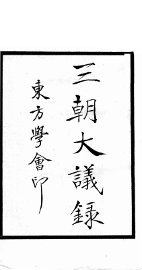 三朝大議録
東方學會印